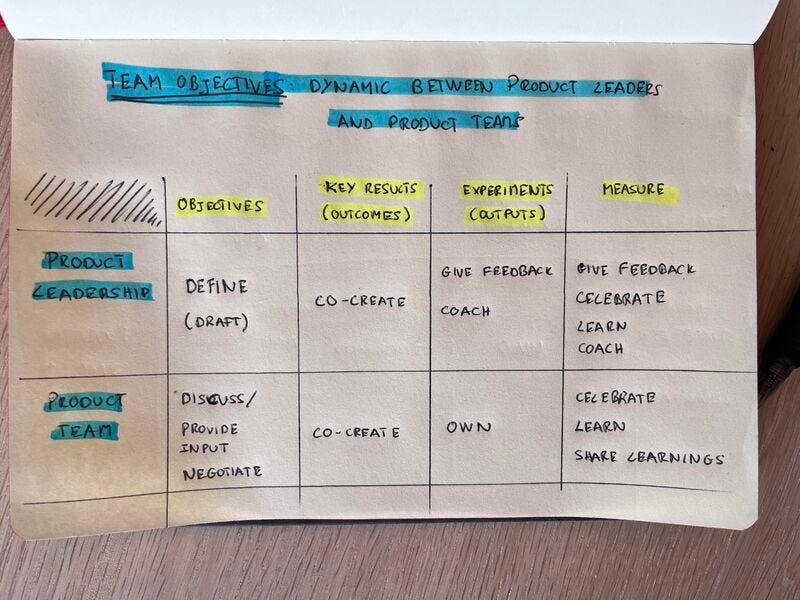 TEAM OBJECTIVES: DYNAMIC BETWEEN PRODUCT LEADERS
AND PRODUCT TEAMS
OBJECTIVES
KEY RESULTS
(OUTCOMES)
EXPERIMENTS
(OUTPUTS)
MEASURE
PRODUCT
LEADERSHIP
DEFINE
(DRAFT)
CO-CREATE
GIVE FEEDBACK
COACH
GIVE FEEDBACK
CELEBRATE
LEARN
COACH
PRODUCT
TEAM
DISCUSS/
PROVIDE
INPUT
NEGOTIATE
CO-CREATE
OWN
CELEBRATE
LEARN
SHARE LEARNINGS